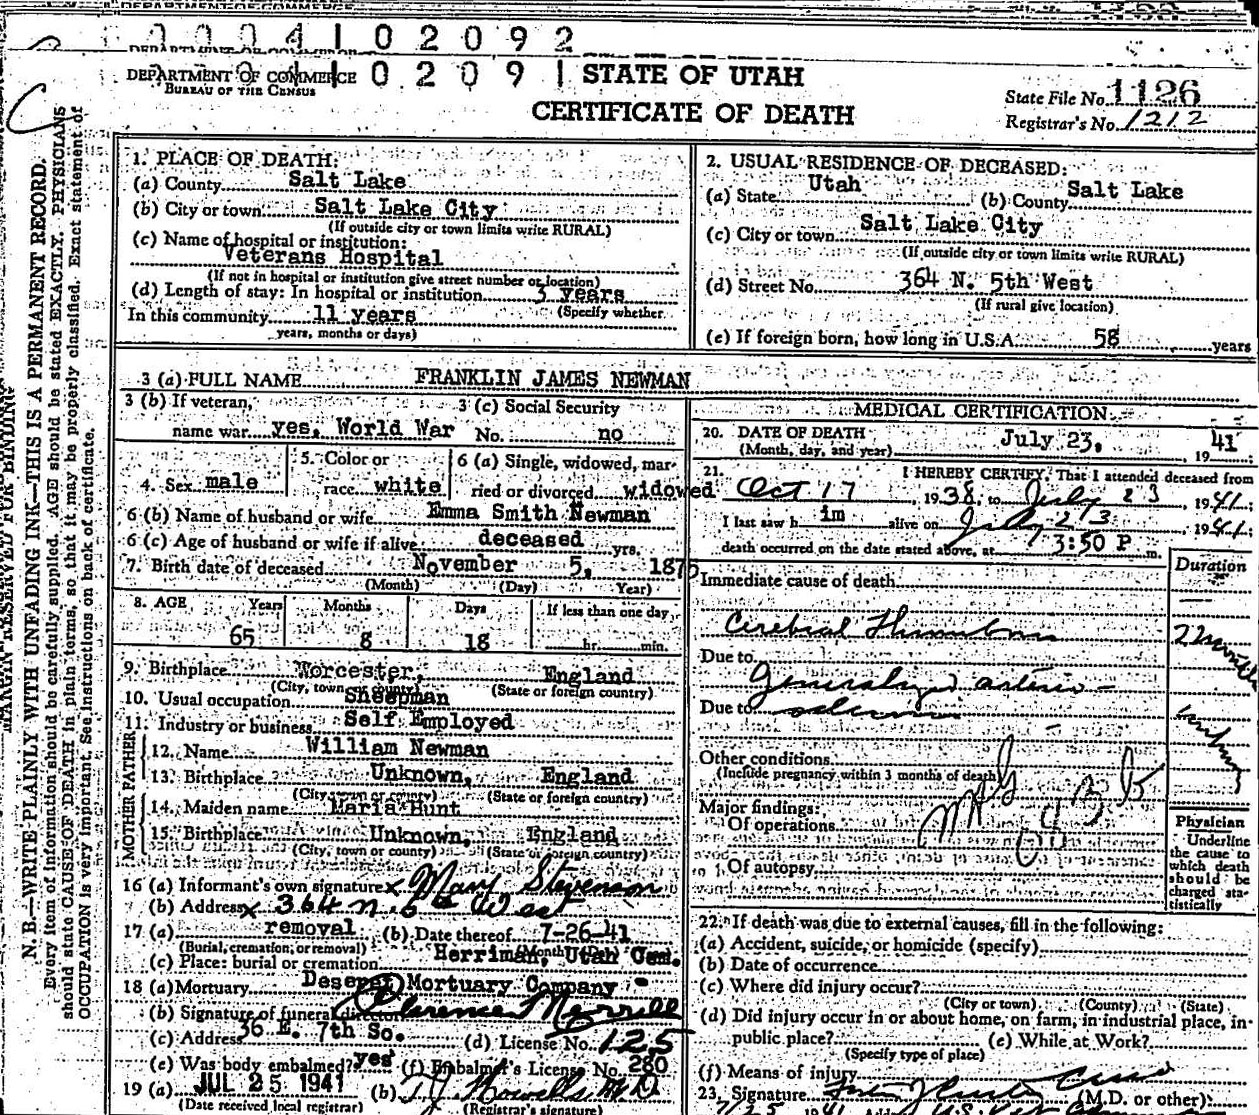 0 0 0 4 1 0 2 0 9 2
DEPARTMENT OF COMMERCE 1 0 2 0 9 1 STATE OF UTAH
BUREAU OF THE CENSUS
CERTIFICATE OF DEATH
State File No. 1126
Registrar's No. 1212
MARGIN RESERVED FOR BINDING
N. B.—WRITE PLAINLY WITH UNFADING INK—THIS IS A PERMANENT RECORD.
Every item of information should be carefully supplied. AGE should be stated EXACTLY. PHYSICIANS
should state CAUSE OF DEATH in plain terms, so that it may be properly classified. Exact statement of
OCCUPATION is very important. See instructions on back of certificate.
1. PLACE OF DEATH:
(a) County Salt Lake
(b) City or town Salt Lake City
(If outside city or town limits write RURAL)
(c) Name of hospital or institution:
Veterans Hospital
(If not in hospital or institution give street number or location)
(d) Length of stay: In hospital or institution 3 years
(Specify whether
In this community 11 years
years, months or days)
2. USUAL RESIDENCE OF DECEASED:
(a) State Utah (b) County Salt Lake
(c) City or town Salt Lake City
(If outside city or town limits write RURAL)
(d) Street No. 364 N. 5th West
(If rural give location)
(e) If foreign born, how long in U.S.A. 58 years
3 (a) FULL NAME FRANKLIN JAMES NEWMAN
3 (b) If veteran, 3 (c) Social Security
name war yes, World War No. no
4. Sex male 5. Color or race white 6 (a) Single, widowed, married or divorced widowed
6 (b) Name of husband or wife Emma Smith Newman
6 (c) Age of husband or wife if alive deceased yrs.
7. Birth date of deceased November 5, 1875
(Month) (Day) Year)
8. AGE Years Months Days If less than one day
65 8 18 hr. min.
9. Birthplace Worcester, England
(City, town or county) (State or foreign country)
10. Usual occupation Sheepman
11. Industry or business Self Employed
FATHER
12. Name William Newman
13. Birthplace Unknown, England
(City, town or county) (State or foreign country)
MOTHER
14. Maiden name Maria Hunt
15. Birthplace Unknown, England
(City, town or county) (State or foreign country)
16 (a) Informant's own signature x Mary Stevenson
(b) Address x 364 N. 5th West
17 (a) removal (b) Date thereof 7-26-41
(Burial, cremation, or removal) (Month, Day
(c) Place: burial or cremation Herriman, Utah Cem.
18 (a) Mortuary Deseret Mortuary Company
(b) Signature of funeral director Clarence Merrill
(c) Address 36 E. 7th So. (d) License No. 125
(e) Was body embalmed? yes (f) Embalmer's License No. 280
19 (a) JUL 25 1941 (b) T.J. Howells M.D.
(Date received local registrar) (Registrar's signature)
MEDICAL CERTIFICATION
20. DATE OF DEATH July 23, 1941
(Month, day, and year)
21. I HEREBY CERTIFY, That I attended deceased from
Oct 17, 1938, to July 23, 1941.
I last saw h im alive on July 23, 1941.
death occurred on the date stated above, at 3:50 P m.
Duration
Immediate cause of death
Cerebral Thrombosis
Due to
Generalized arterio-
Due to sclerosis
Other conditions
(Include pregnancy within 3 months of death)
Major findings:
Of operations
Of autopsy
Physician
Underline
the cause to
which death
should be
charged sta-
tistically
22. If death was due to external causes, fill in the following:
(a) Accident, suicide, or homicide (specify)
(b) Date of occurrence
(c) Where did injury occur?
(City or town) (County) (State)
(d) Did injury occur in or about home, on farm, in industrial place, in
public place? (e) While at Work?
(Specify type of place)
(f) Means of injury
23. Signature (M.D. or other)